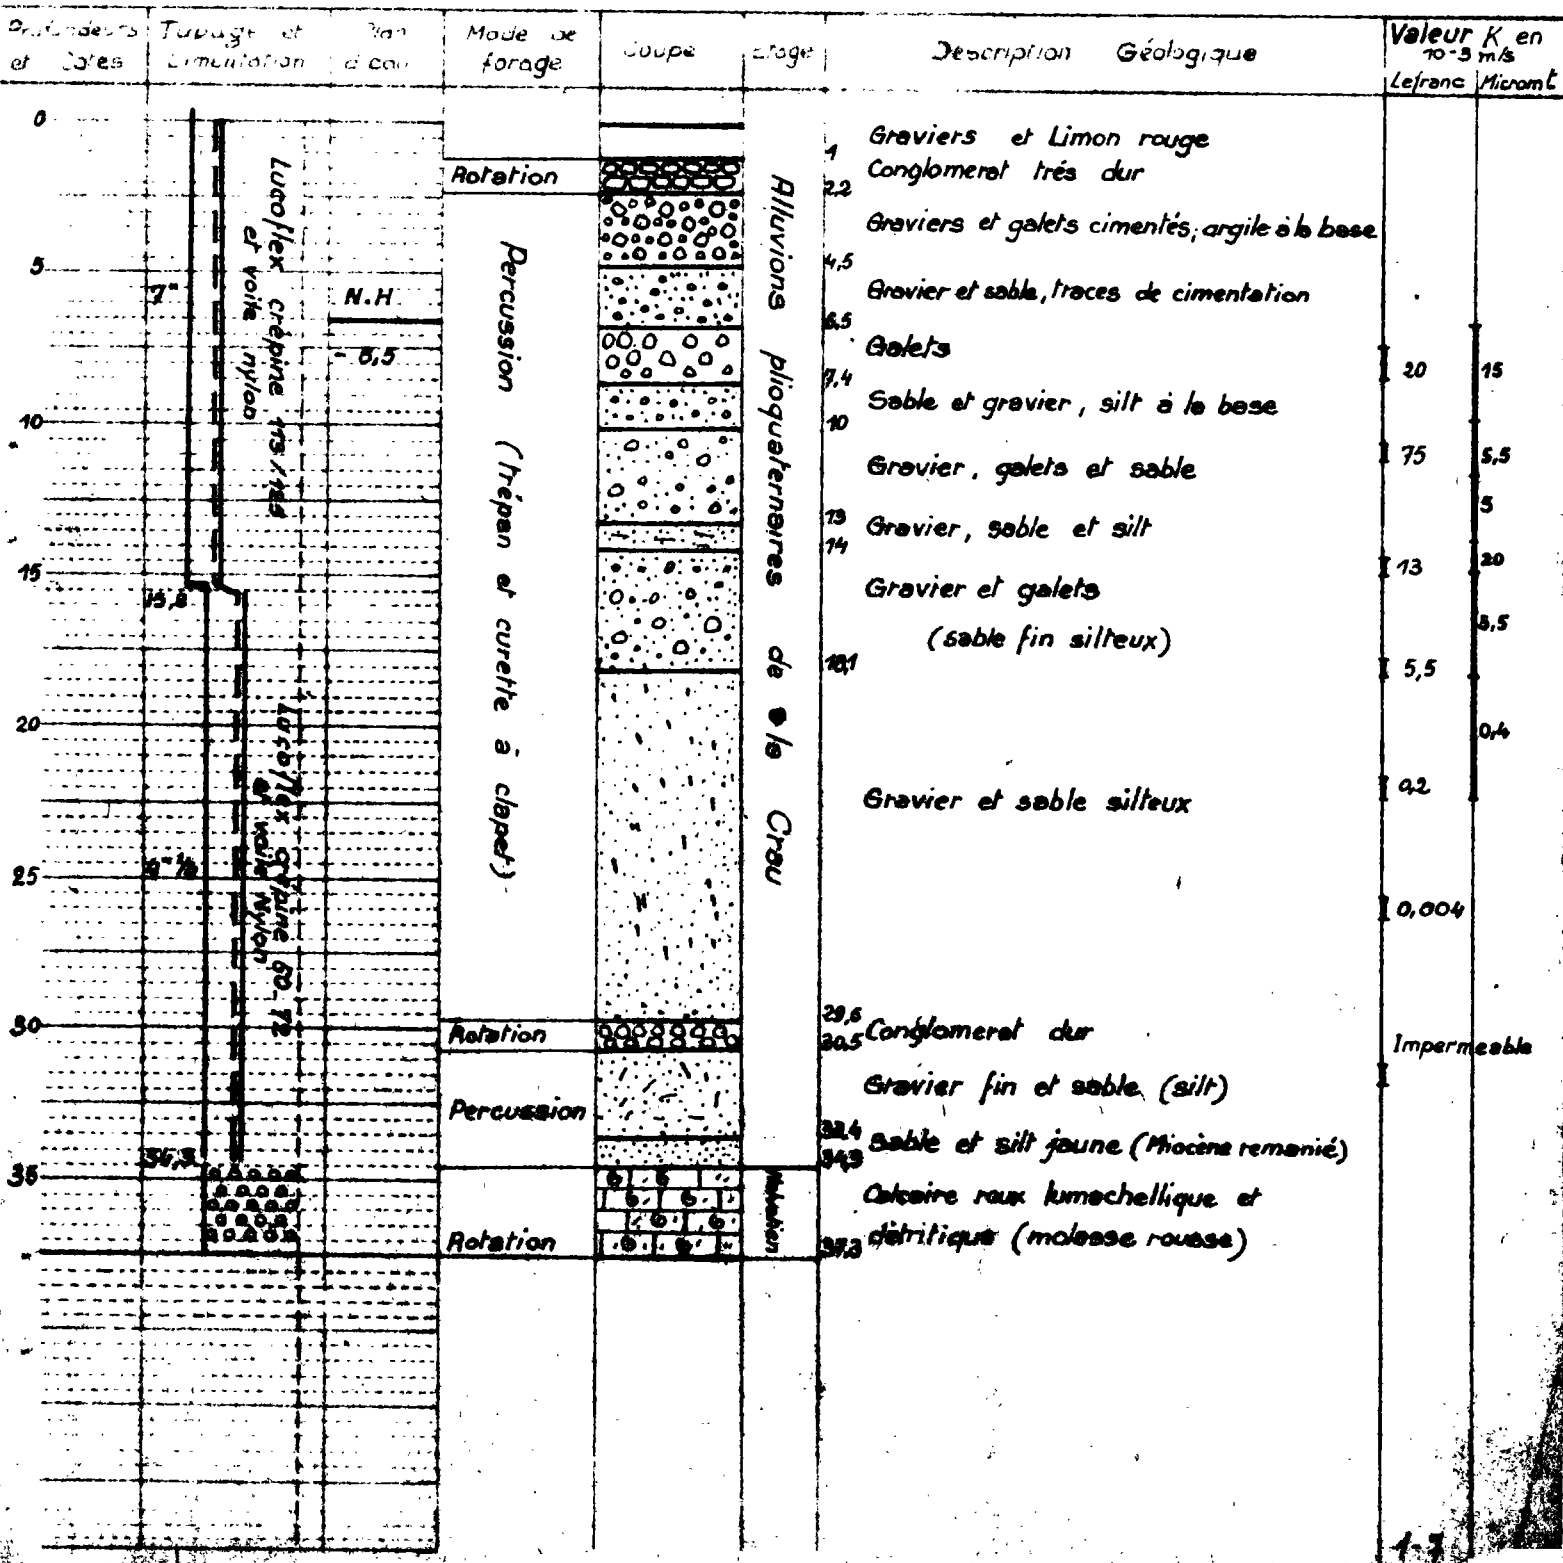 Profondeurs et Cotes
Tubage et Cimentation
Plan d'eau
Mode de forage
Coupe
Etage
Description Géologique
Valeur K en 10-3 m/s
Lefranc
Micromt
0
5
10
15
20
25
30
35
7"
15,8
34,3
Lucoflex crépine 113/125
et voile nylon
Lucoflex crépine 60_72
et voile Nylon
N.H
Rotation
Percussion (trépan et curette à clapet)
Rotation
Percussion
Rotation
Alluvions plioquaternaires de la Crau
1
2,2
4,5
6,5
7,4
10
13
14
18,1
29,6
30,5
34,3
37,3
Graviers et Limon rouge
Conglomerat trés dur
Graviers et galets cimentés, argile à la base
Gravier et sable, traces de cimentation
Galets
Sable et gravier, silt à la base
Gravier, galets et sable
Gravier, sable et silt
Gravier et galets
(sable fin silteux)
Gravier et sable silteux
Conglomerat dur
Gravier fin et sable (silt)
Sable et silt jaune (Miocène remanié)
Calcaire roux lumachellique et
détritique (molasse rousse)
20
75
13
5,5
0,2
0,004
Impermeable
15
5,5
5
20
0,4